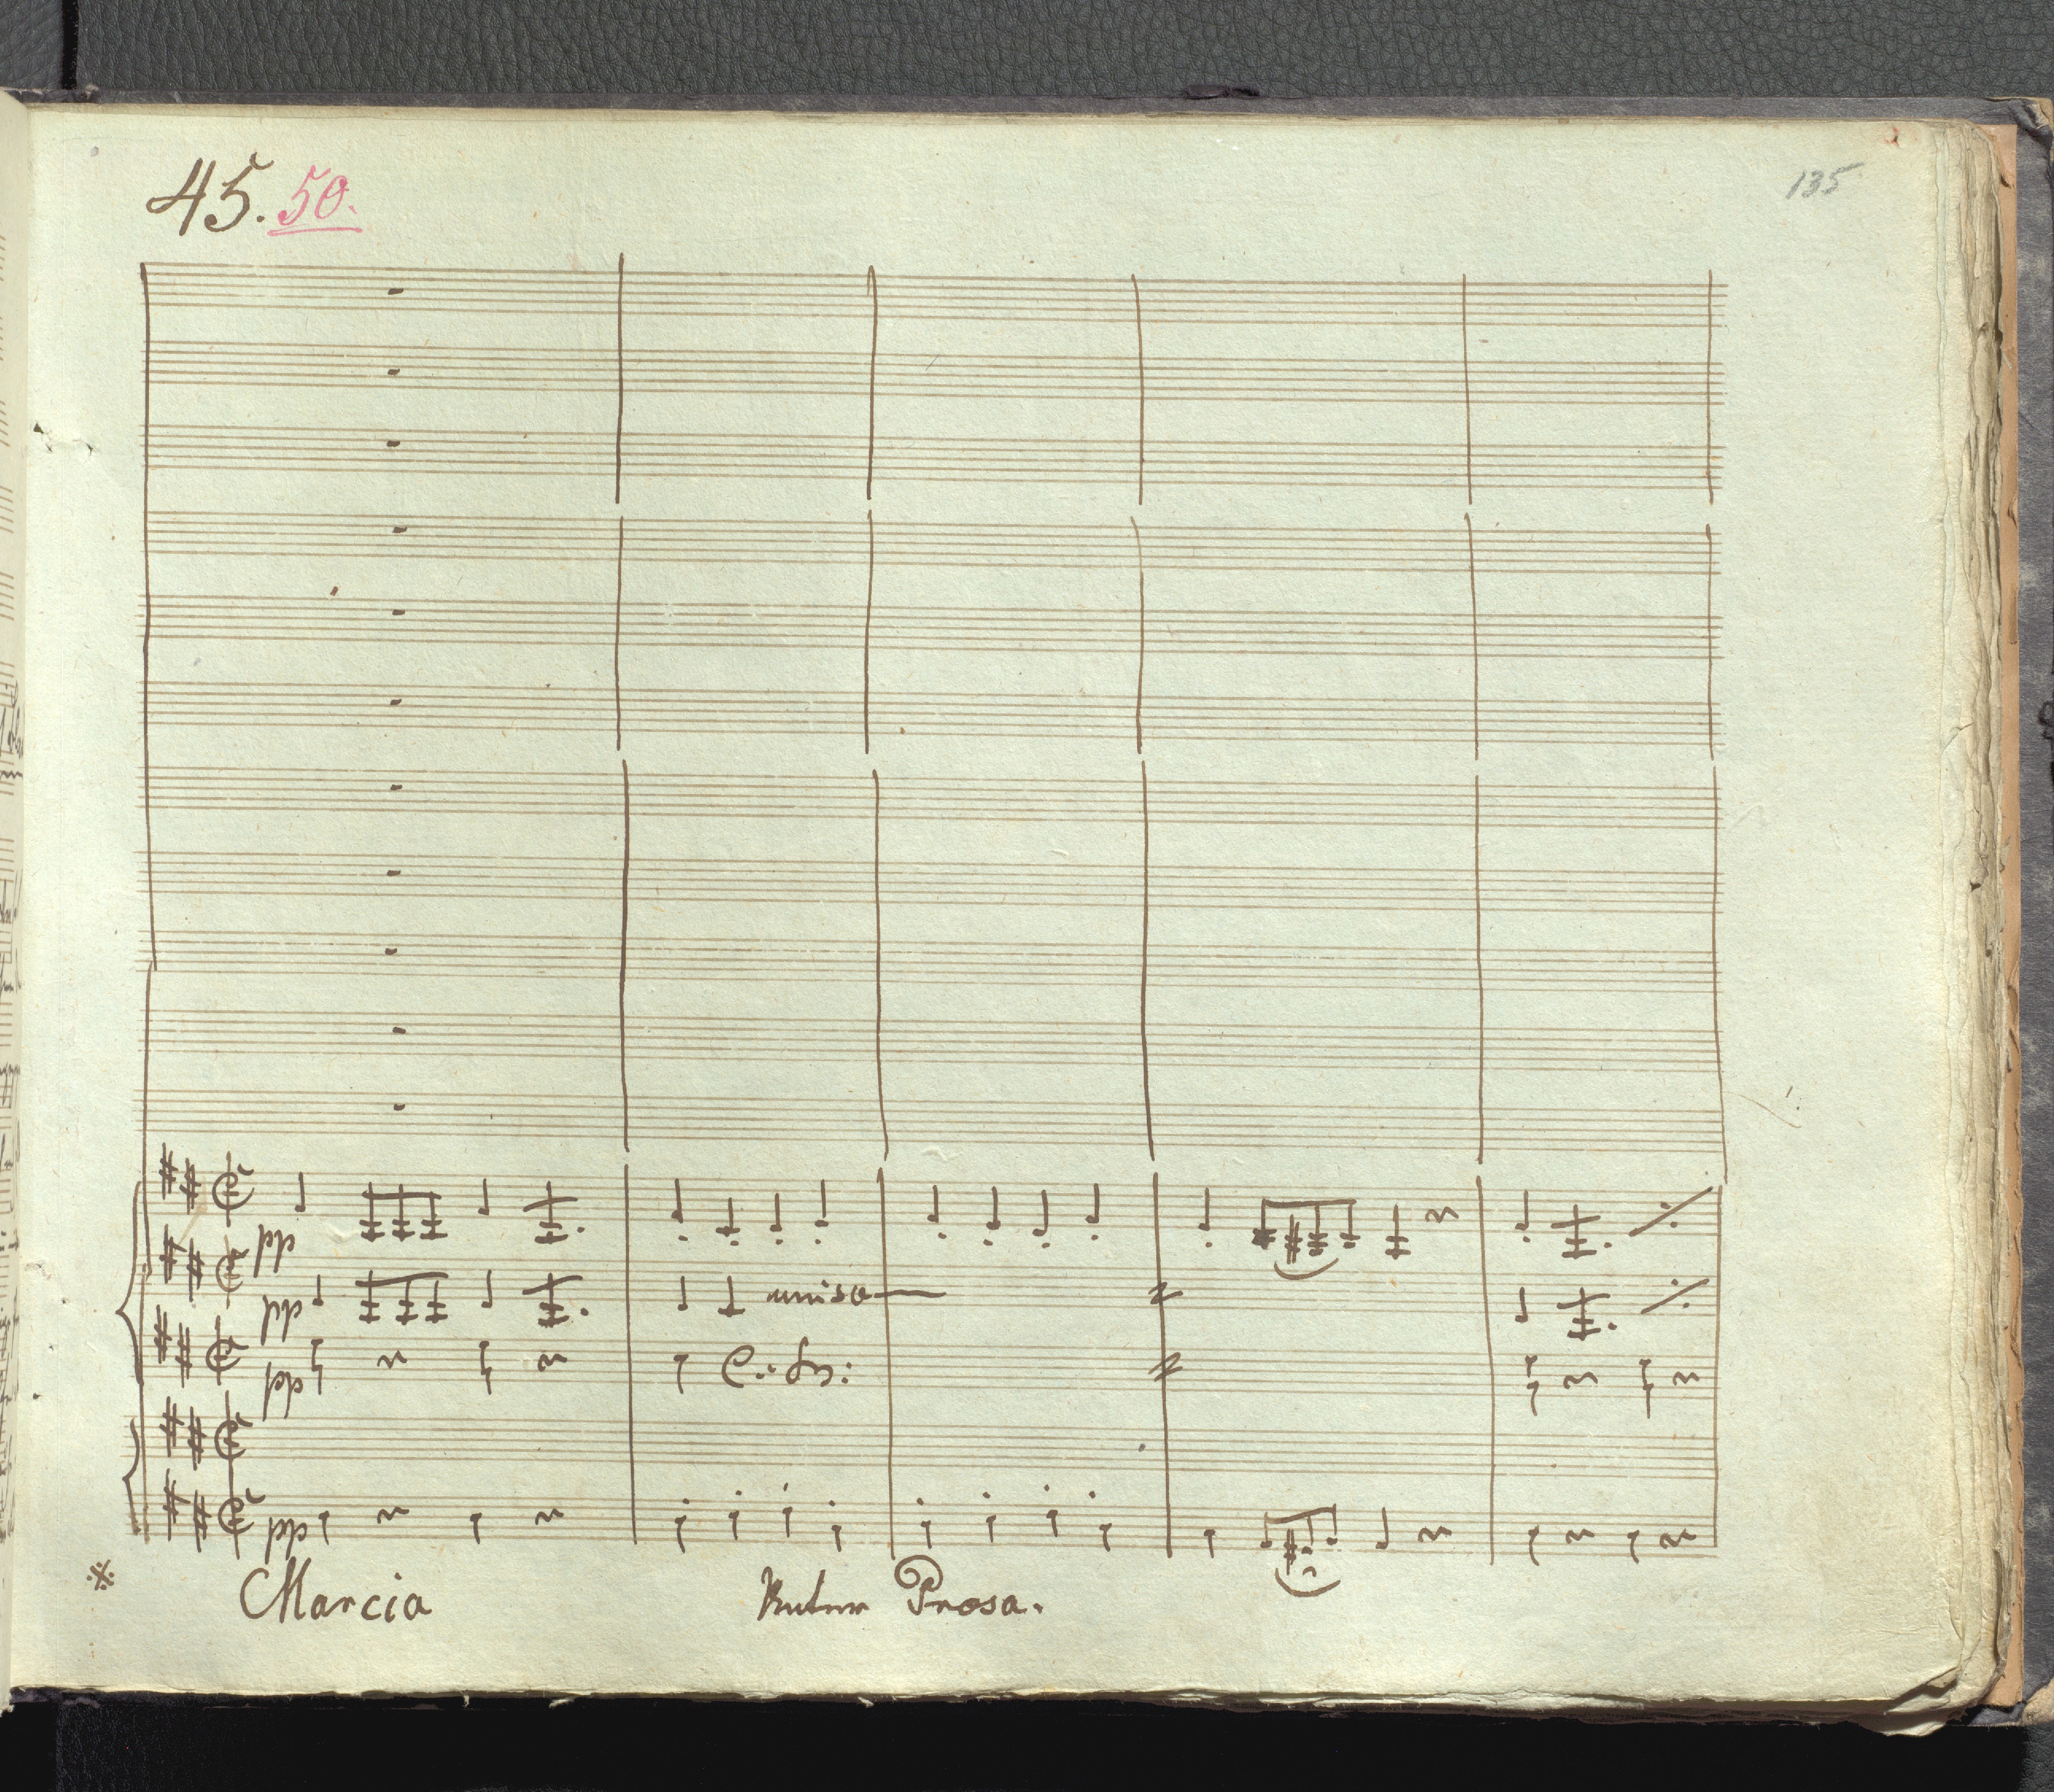 45. 50.
135
pp
pp uniso
pp C: B:
pp
Marcia Prosa.